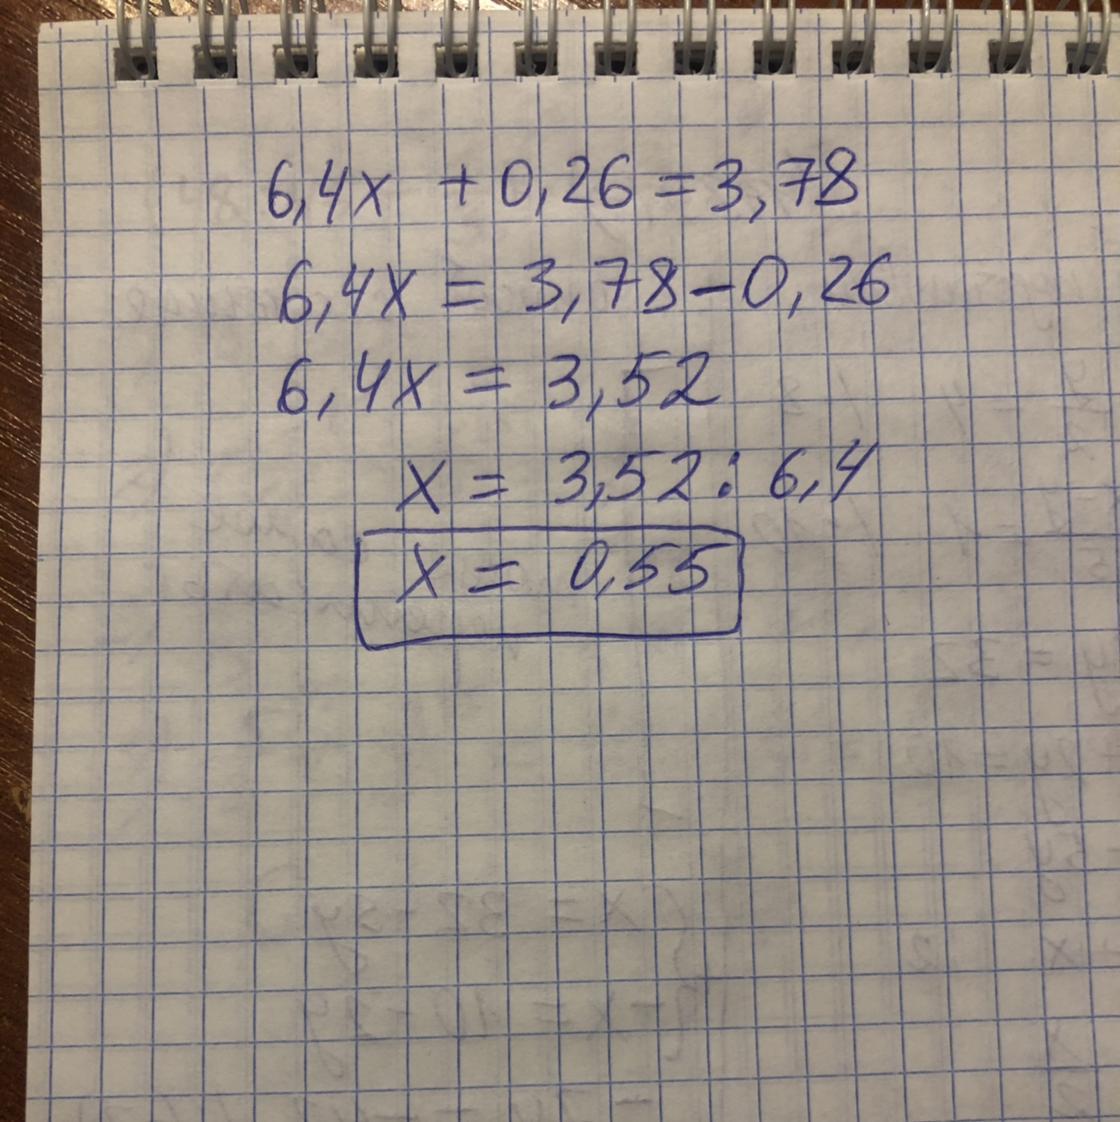 6,4x + 0,26 = 3,78
6,4x = 3,78 - 0,26
6,4x = 3,52
x = 3,52 : 6,4
x = 0,55